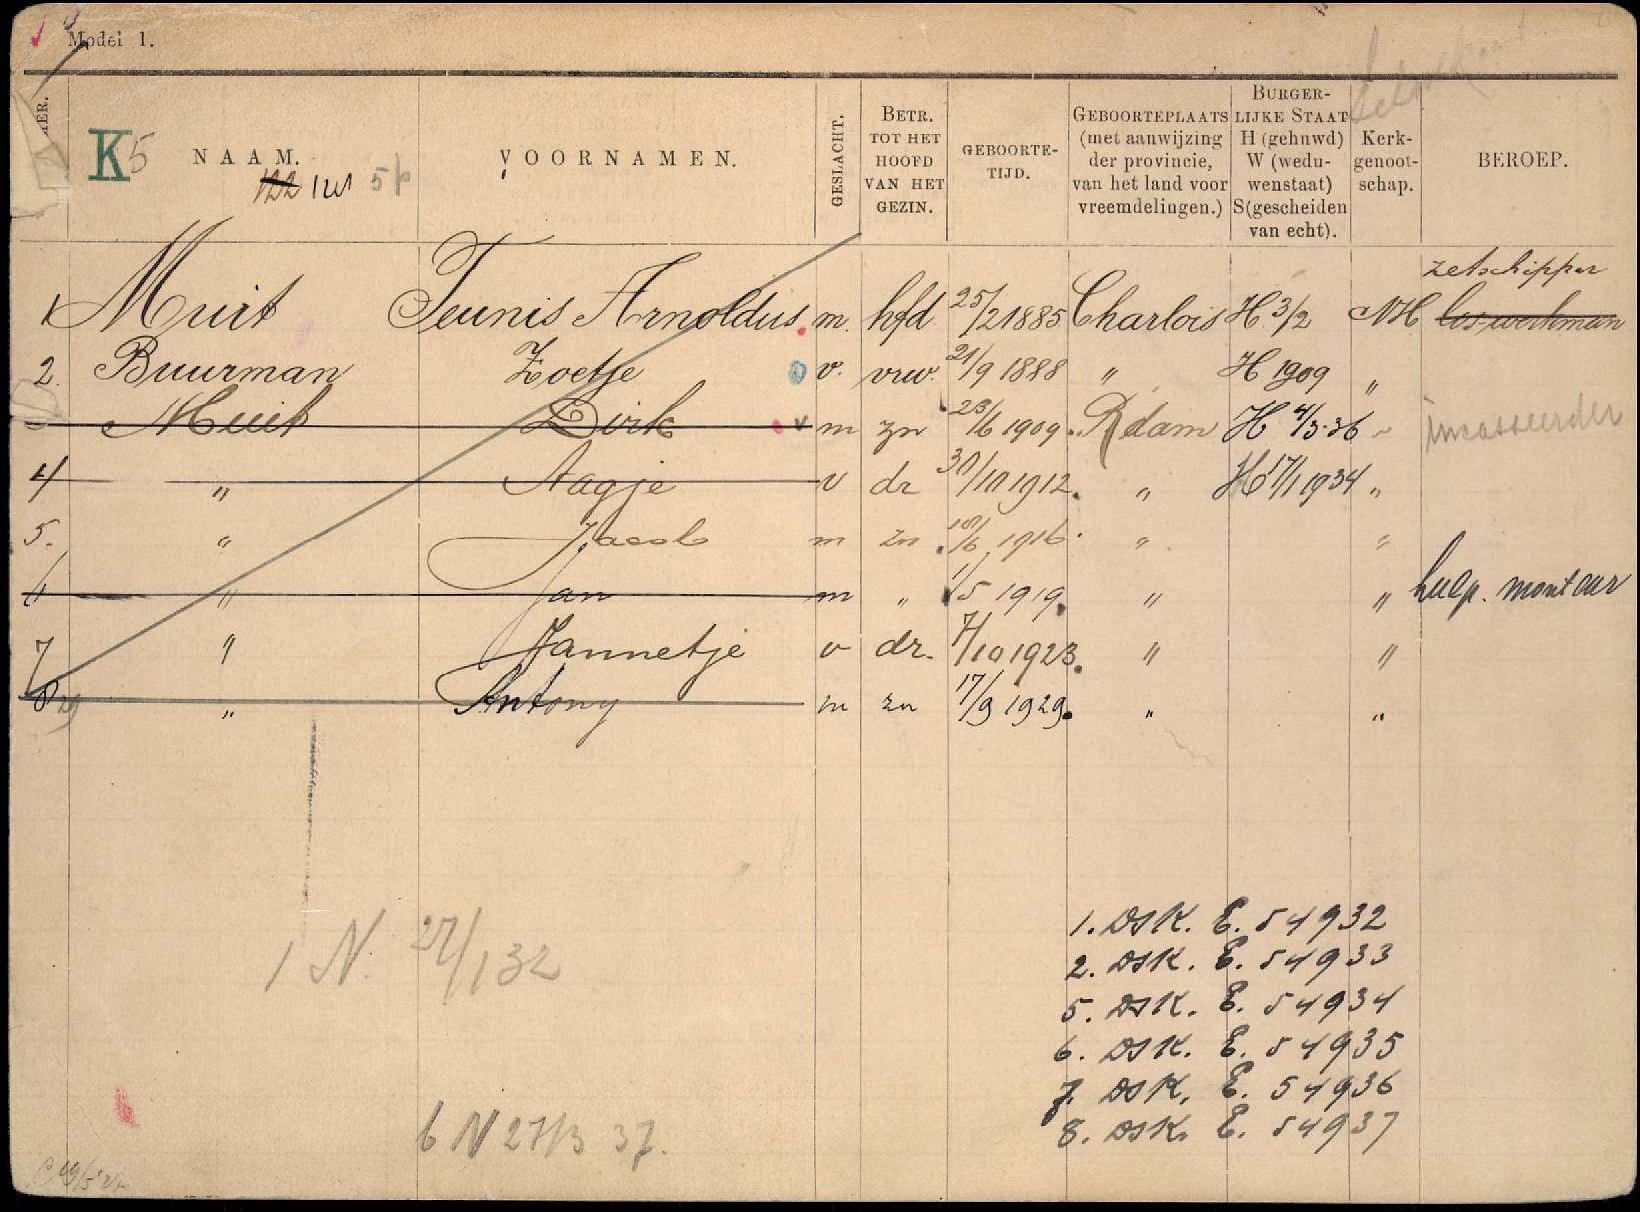 Model 1.
K5 NAAM. VOORNAMEN. GESLACHT. BETR. TOT HET HOOFD VAN HET GEZIN. GEBOORTE-TIJD. GEBOORTEPLAATS (met aanwijzing der provincie, van het land voor vreemdelingen.) BURGER-LIJKE STAAT H (gehuwd) W (wedu-wenstaat) S (gescheiden van echt). Kerk-genoot-schap. BEROEP.
122
zetschipper
1 Muit Teunis Arnoldus m. hfd 25/2 1885 Charlois H 3/2 NH los werkman
2. Buurman Zoetje v. vrw. 21/9 1888 " H 1909 "
Muit Dirk m zn 23/6 1909 Rdam H 4/3-36 " Incasseerder
4 " Aagje v dr 30/10 1912 " H 17/1 1934 "
5. " Jacob m zn 18/6 1916 " "
6 " Jan m " 1/5 1919 " " hulp. monteur
7 " Jannetje v dr. 7/10 1923 " "
8 " Antony m zn 17/9 1929 " "
1. DSK. E. 54932
1 N. 27/132
2. DSK. E. 54933
5. DSK. E. 54934
6. DSK. E. 54935
7. DSK. E. 54936
6 N 27/3 37.
8. DSK. E. 54937